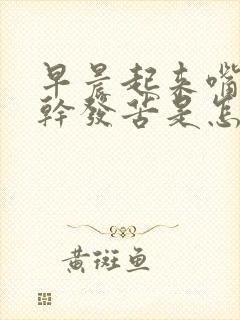 早晨起来嘴
幹發苦是怎
黄斑鱼